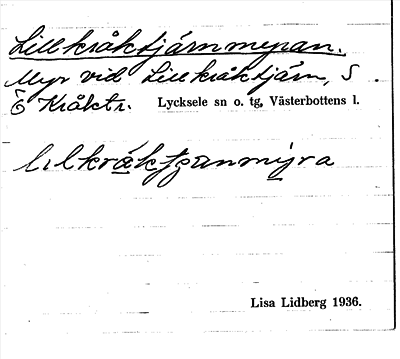 Lillkråktjärnmyran.
Myr vid Lillkråktjärn, S
Ö Kråktr. Lycksele sn o. tg, Västerbottens l.
Lisa Lidberg 1936.